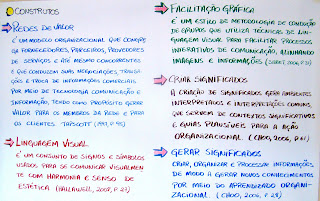 CONSTRUTOS
REDES DE VALOR
É UM MODELO ORGANIZACIONAL QUE CONGREGA
FORNECEDORES, PARCEIROS, PROVEDORES
DE SERVIÇOS E ATÉ MESMO CONCORRENTES
E QUE CONDUZEM SUAS NEGOCIAÇÕES, TRANSAÇÕES
E TROCA DE INFORMAÇÕES COMERCIAIS
POR MEIO DE TECNOLOGIA COMUNICAÇÃO E
INFORMAÇÃO, TENDO COMO PROPÓSITO GERAR
VALOR PARA OS MEMBROS DA REDE E PARA
OS CLIENTES TAPSCOTT
LINGUAGEM VISUAL
É UM CONJUNTO DE SIGNOS E SÍMBOLOS
USADOS PARA SE COMUNICAR VISUALMEN
TE COM HARMONIA E SENSO DE
ESTÉTICA (HALLAWELL,
FACILITAÇÃO GRÁFICA
É UM ESTILO DE METODOLOGIA DE CONDUÇÃO
DE GRUPOS QUE UTILIZA TÉCNICAS DE LIN-
GUAGEM VISUAL PARA FACILITAR PROCESSOS
INTERATIVOS DE COMUNICAÇÃO, ALINHANDO
IMAGENS E INFORMAÇÕES
CRIAR SIGNIFICADOS
A CRIAÇÃO DE SIGNIFICADOS GERA AMBIENTES
INTERPRETADOS E INTERPRETAÇÕES COMUNS
QUE SERVEM DE CONTEXTOS SIGNIFICATIVOS
E GUIAS PLAUSÍVEIS PARA A AÇÃO
ORGANIZACIONAL (CHOO, 2006,
GERAR SIGNIFICADOS
CRIAR, ORGANIZAR E PROCESSAR INFORMAÇÕES
DE MODO A GERAR NOVOS CONHECIMENTOS
POR MEIO DO APRENDIZADO ORGANI-
ZACIONAL (CHOO, 2006, P.29)